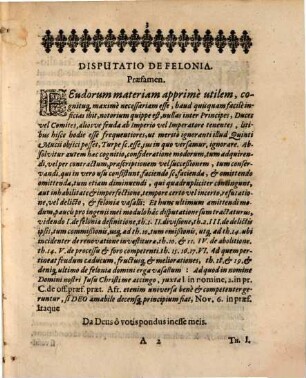 DISPUTATIO DE FELONIA.
Præfamen.
FEudorum materiam apprimè utilem, co-
gnitu maximè necessariam esse, haud quiquam facilè in-
cias ibit, notorium quippe est, nullas inter Principes, Duces
vel Comites, aliosve feuda ab Imperio vel Imperatore tenentes, li-
tibus hisce hodie esse frequentiores, ut meritò ignoranti illud Quinti
Mucii objici posset, Turpe sc. esse, jus in quo versamur, ignorare. Ab-
solvitur autem hæc cognitio, consideratione modorum, tum adquiren-
di, vel per contractum, præscriptionem vel successionem, tum conser-
vandi, qui in vero usu consistunt, faciendo sc. facienda, & omittendo
omittenda, tum etiam dimittendi, qui quadrupliciter contingunt,
aut inhabilitate & imperfectione, tempore certo vel incerto, refutatione,
vel delicto, & felonia vasalli: Et hunc ultimum amittendi mo-
dum, pro meo ingenii modulo hâc disputatione sum tractaturus,
videndo I. de feloniæ definitione, th. I. II. divisione,
ipsi, tum commissionis, usq; ad th. 10, tum omissionis, usq; ad th. 14. ubi
incidenter de renovatione investituræ th. 10. & 11. IV. de
th. 14. V. de processu & foro competenti th. 15. 16. 17. VI. Ad quem perti-
neat feudum caducum, fructusq; & meliorationes, th. 18. & 19. &
deniq; ultimo de felonia domini erga vasallum: Ad quod in nomine
Domini nostri Jesu Christi me accingo, juxta l. in nomine, 2. in pr.
C. de off. præf. præt. Afr. etenim universa benè & competenter ge-
runtur, si DEO amabile decensq; principium fiat, Nov, 6. in præf.
Itaque
Da Deus ô votis pondus inesse meis.
A 2 Th. I.